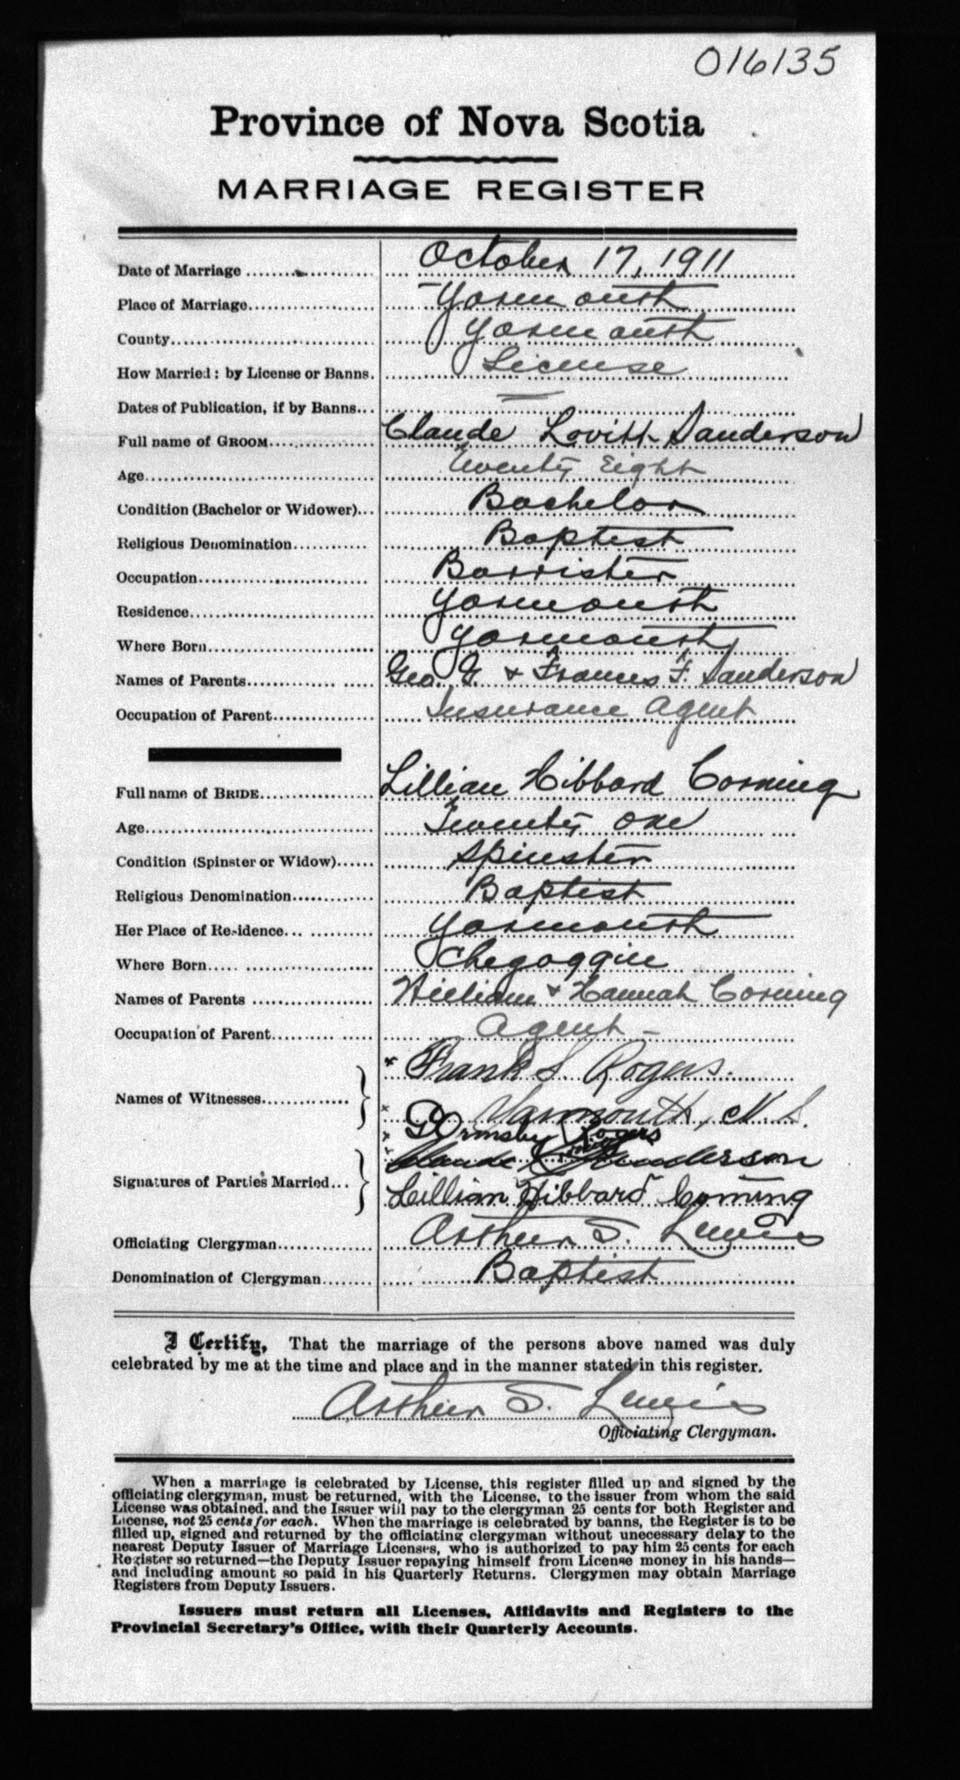 016135
Province of Nova Scotia
MARRIAGE REGISTER
Date of Marriage October 17, 1911
Place of Marriage Yarmouth
County Yarmouth
How Married: by License or Banns. License
Dates of Publication, if by Banns
Full name of GROOM Claude Lovitt Sanderson
Age Twenty Eight
Condition (Bachelor or Widower) Bachelor
Religious Denomination Baptist
Occupation Barrister
Residence Yarmouth
Where Born Yarmouth
Names of Parents Geo. G. & Frances F. Sanderson
Occupation of Parent Insurance Agent
Full name of BRIDE Lillian Hibbard Corning
Age Twenty One
Condition (Spinster or Widow) Spinster
Religious Denomination Baptist
Her Place of Residence Yarmouth
Where Born Chegoggin
Names of Parents William & Hannah Corning
Occupation of Parent Agent
Names of Witnesses Frank S. Rogers.
Yarmouth, N.S.
Ormsby Rogers
Signatures of Parties Married Claude Sanderson
Lillian Hibbard Corning
Officiating Clergyman Arthur S. Lewis
Denomination of Clergyman Baptist
I Certify, That the marriage of the persons above named was duly
celebrated by me at the time and place and in the manner stated in this register.
Arthur S. Lewis
Officiating Clergyman.
When a marriage is celebrated by License, this register filled up and signed by the
officiating clergyman, must be returned, with the License, to the issuer from whom the said
License was obtained, and the Issuer will pay to the clergyman 25 cents for both Register and
License, not 25 cents for each. When the marriage is celebrated by banns, the Register is to be
filled up, signed and returned by the officiating clergyman without unecessary delay to the
nearest Deputy Issuer of Marriage Licenses, who is authorized to pay him 25 cents for each
Register so returned—the Deputy Issuer repaying himself from License money in his hands—
and including amount so paid in his Quarterly Returns. Clergymen may obtain Marriage
Registers from Deputy Issuers.
Issuers must return all Licenses, Affidavits and Registers to the
Provincial Secretary's Office, with their Quarterly Accounts.